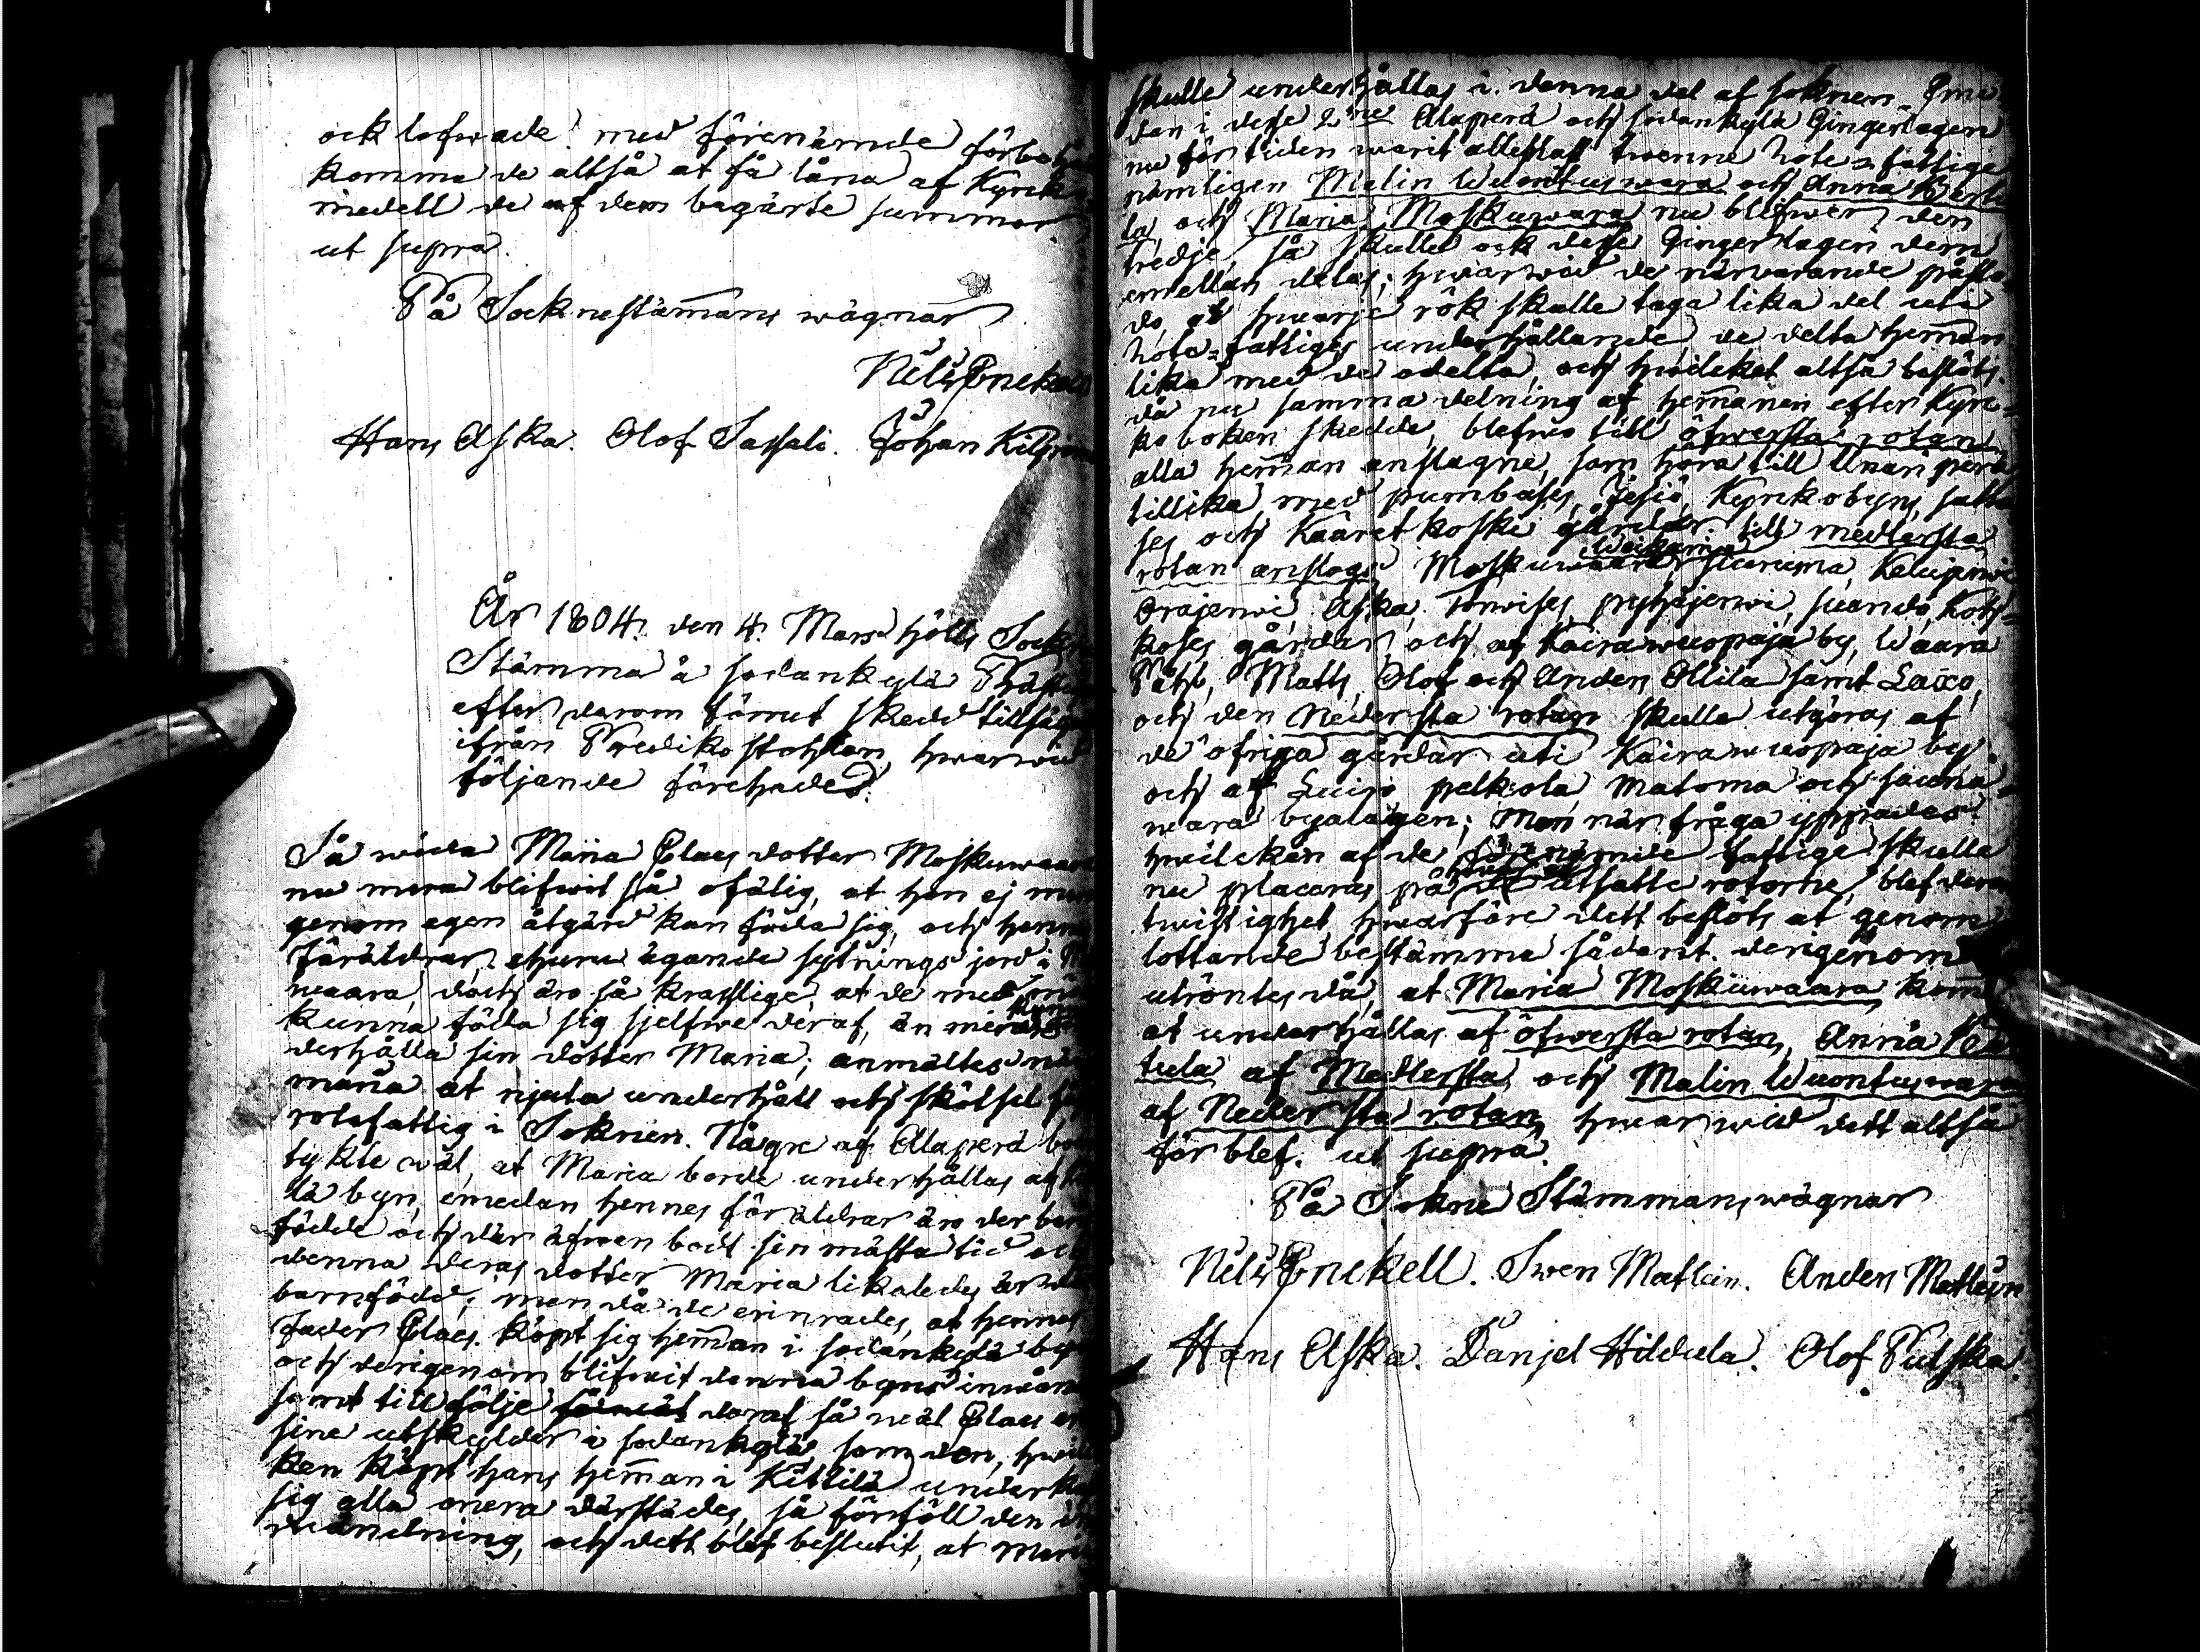 ock lofwade: med förenämde
komma de altså at få låna af Kyrck
medell de af dem begärte summor
ut supra.
På Socknestämans wägnar
Nils Enckell
Hans Aska. Olof Sassali. Johan
År 1804. den 4. Mars hölts Sockn
Stämma å sodankylä Präst
efter derom förrut skedd tillsäg
ifrån Predikostohlen, hwarwid
följande förehades:
Så wida Maria Claes dotter Moskuwaara
nu mera blifwit så ofälig, at hon ej mera
genom egen åtgärd kan föda sig, och hennes
Föräldrar, ehuru ägande sytnings jord i
waara, doch äro så kraftlige, at de med
kunna föda sig sjelfwe deraf, än mera
derhålla sin dotter Maria; anmältes
Maria at njuta underhåll och skötsel
rotefattig i Soknen. Någre af Alaperä
tykte wäl, at Maria borde underhållas af
lä byn, emedan hennes föräldrar äro der
födde och der äfwen bodt sin mästa tid och
denna deras dotter Maria likaledes är
barnfödd; men då de erinrades, at hennes
Fader Claes köpt sig heman i sodankylä by
och derigenom blifwit denna byns
samt till följe deraf så wäl Claes
sine utskylder i sodankylä som den, hwil
ken köpt hans heman i Kittilä
sig alla onera därstädes, så förföll den
wändning, och dett blef beslutit, at Maria
skulle underhållas i denna del af soknen. Eme
dan i desse 2ne Alaperä och sodankylä Gingerlagen
nu för tiden warit allestast twenne Rote=fattige
nämligen Malin Wuontuswaara och Anna
la, och Maria Moskuwaara nu blifwer den
tredje, så skulle ock desse Gingerlagen dem
emellan delas; hwarwid de närwarande påsto
do, at hwarje rök skulle taga lika del uti
Rote=fattiges underhållande, de delta heman
lika med de odelta, och hwilcket altså beslöts.
då nu samma delning af hemanen efter Kyrc=
koboken skedde, blefwo till öfwersta rotan
alla heman anslagne, som höra till Unari
tillika med pumbases, Jesiö, Kyrckobyns, satta
ses och Kaaretkoski gårdar. till medlersta
rotan anslogs Moskuwaara, siuruma, Kelujerwi
Orajerwi, Aska, Torwises, pyhäjerwi, suando,
koses gårdar, och af Kairawuopaja by, Waara
Påhl, Matts, Olof och Anders Ollila samt
och den Nedersta rotan skulle utgöras af
de öfriga gårdar uti Kairawuopaja by
och af Luiro, pelkola, Matoma och
wara byalägen; Men när fråga yppades
hwilcken af de förenämde fattige skulle
nu placeras på utsatte rotorne, blef dera
twistighet, hwarföre dett beslöts at genom
lottande bestämma sådant. derigenom
utröntes då, at Maria Moskuwaara kom
at underhållas af öfwersta rotan, Anna
tula af Medlersta, och Malin Wuontuswara
af Nedersta rotan, hwarwid dett altså
förblef. ut supra.
På Sokne Stämmans wägnar
Nils Enckell. Swen Matlein. Anders Matlein
Hans Aska. Danjel Hildula. Olof Pulska.